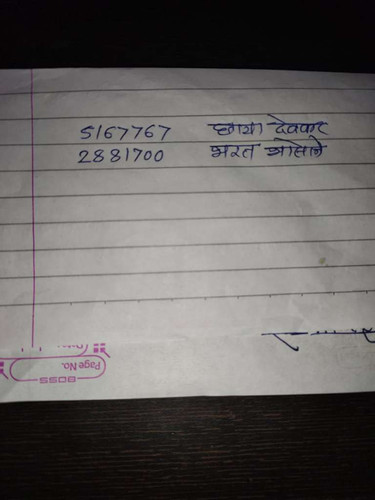 5167767 छाया देवकर
2881700 भरत भासाने
Page No.
BOSS